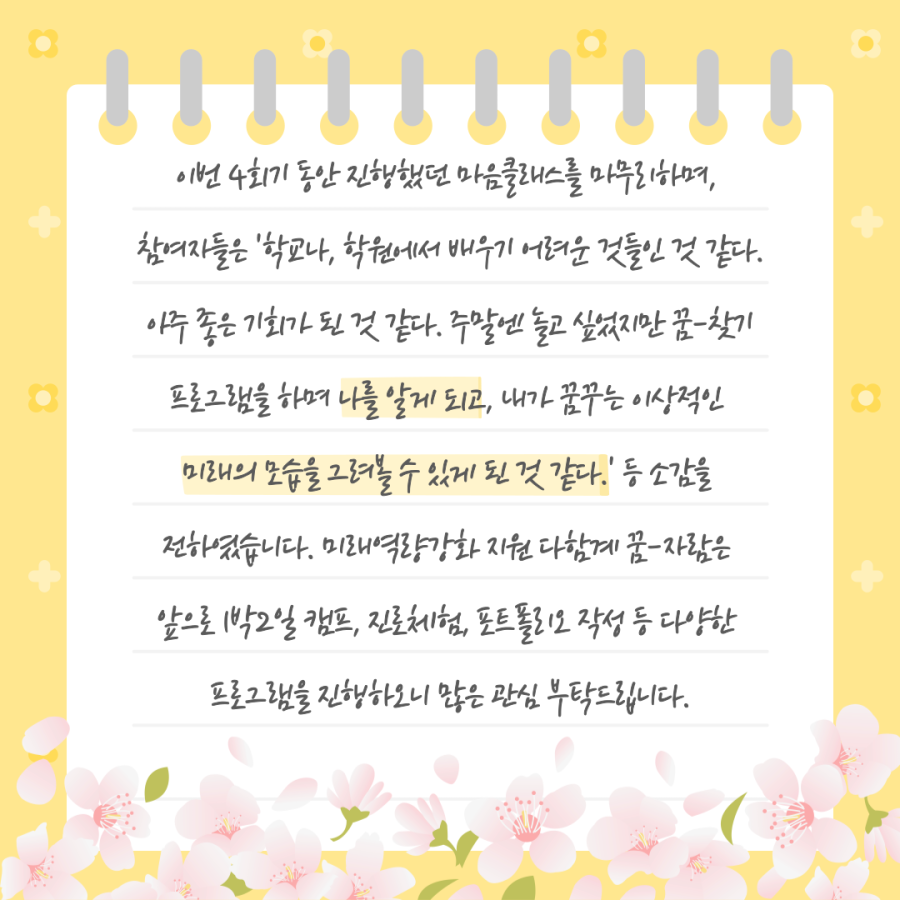 이번 4회기 동안 진행했던 마음클래스를 마무리하며,
참여자들은 '학교나, 학원에서 배우기 어려운 것들인 것 같다.
아주 좋은 기회가 된 것 같다. 주말엔 놀고 싶었지만 꿈-찾기
프로그램을 하며 나를 알게 되고, 내가 꿈꾸는 이상적인
미래의 모습을 그려볼 수 있게 된 것 같다.' 등 소감을
전하였습니다. 미래역량강화 지원 다함께 꿈-자람은
앞으로 1박2일 캠프, 진로체험, 포트폴리오 작성 등 다양한
프로그램을 진행하오니 많은 관심 부탁드립니다.